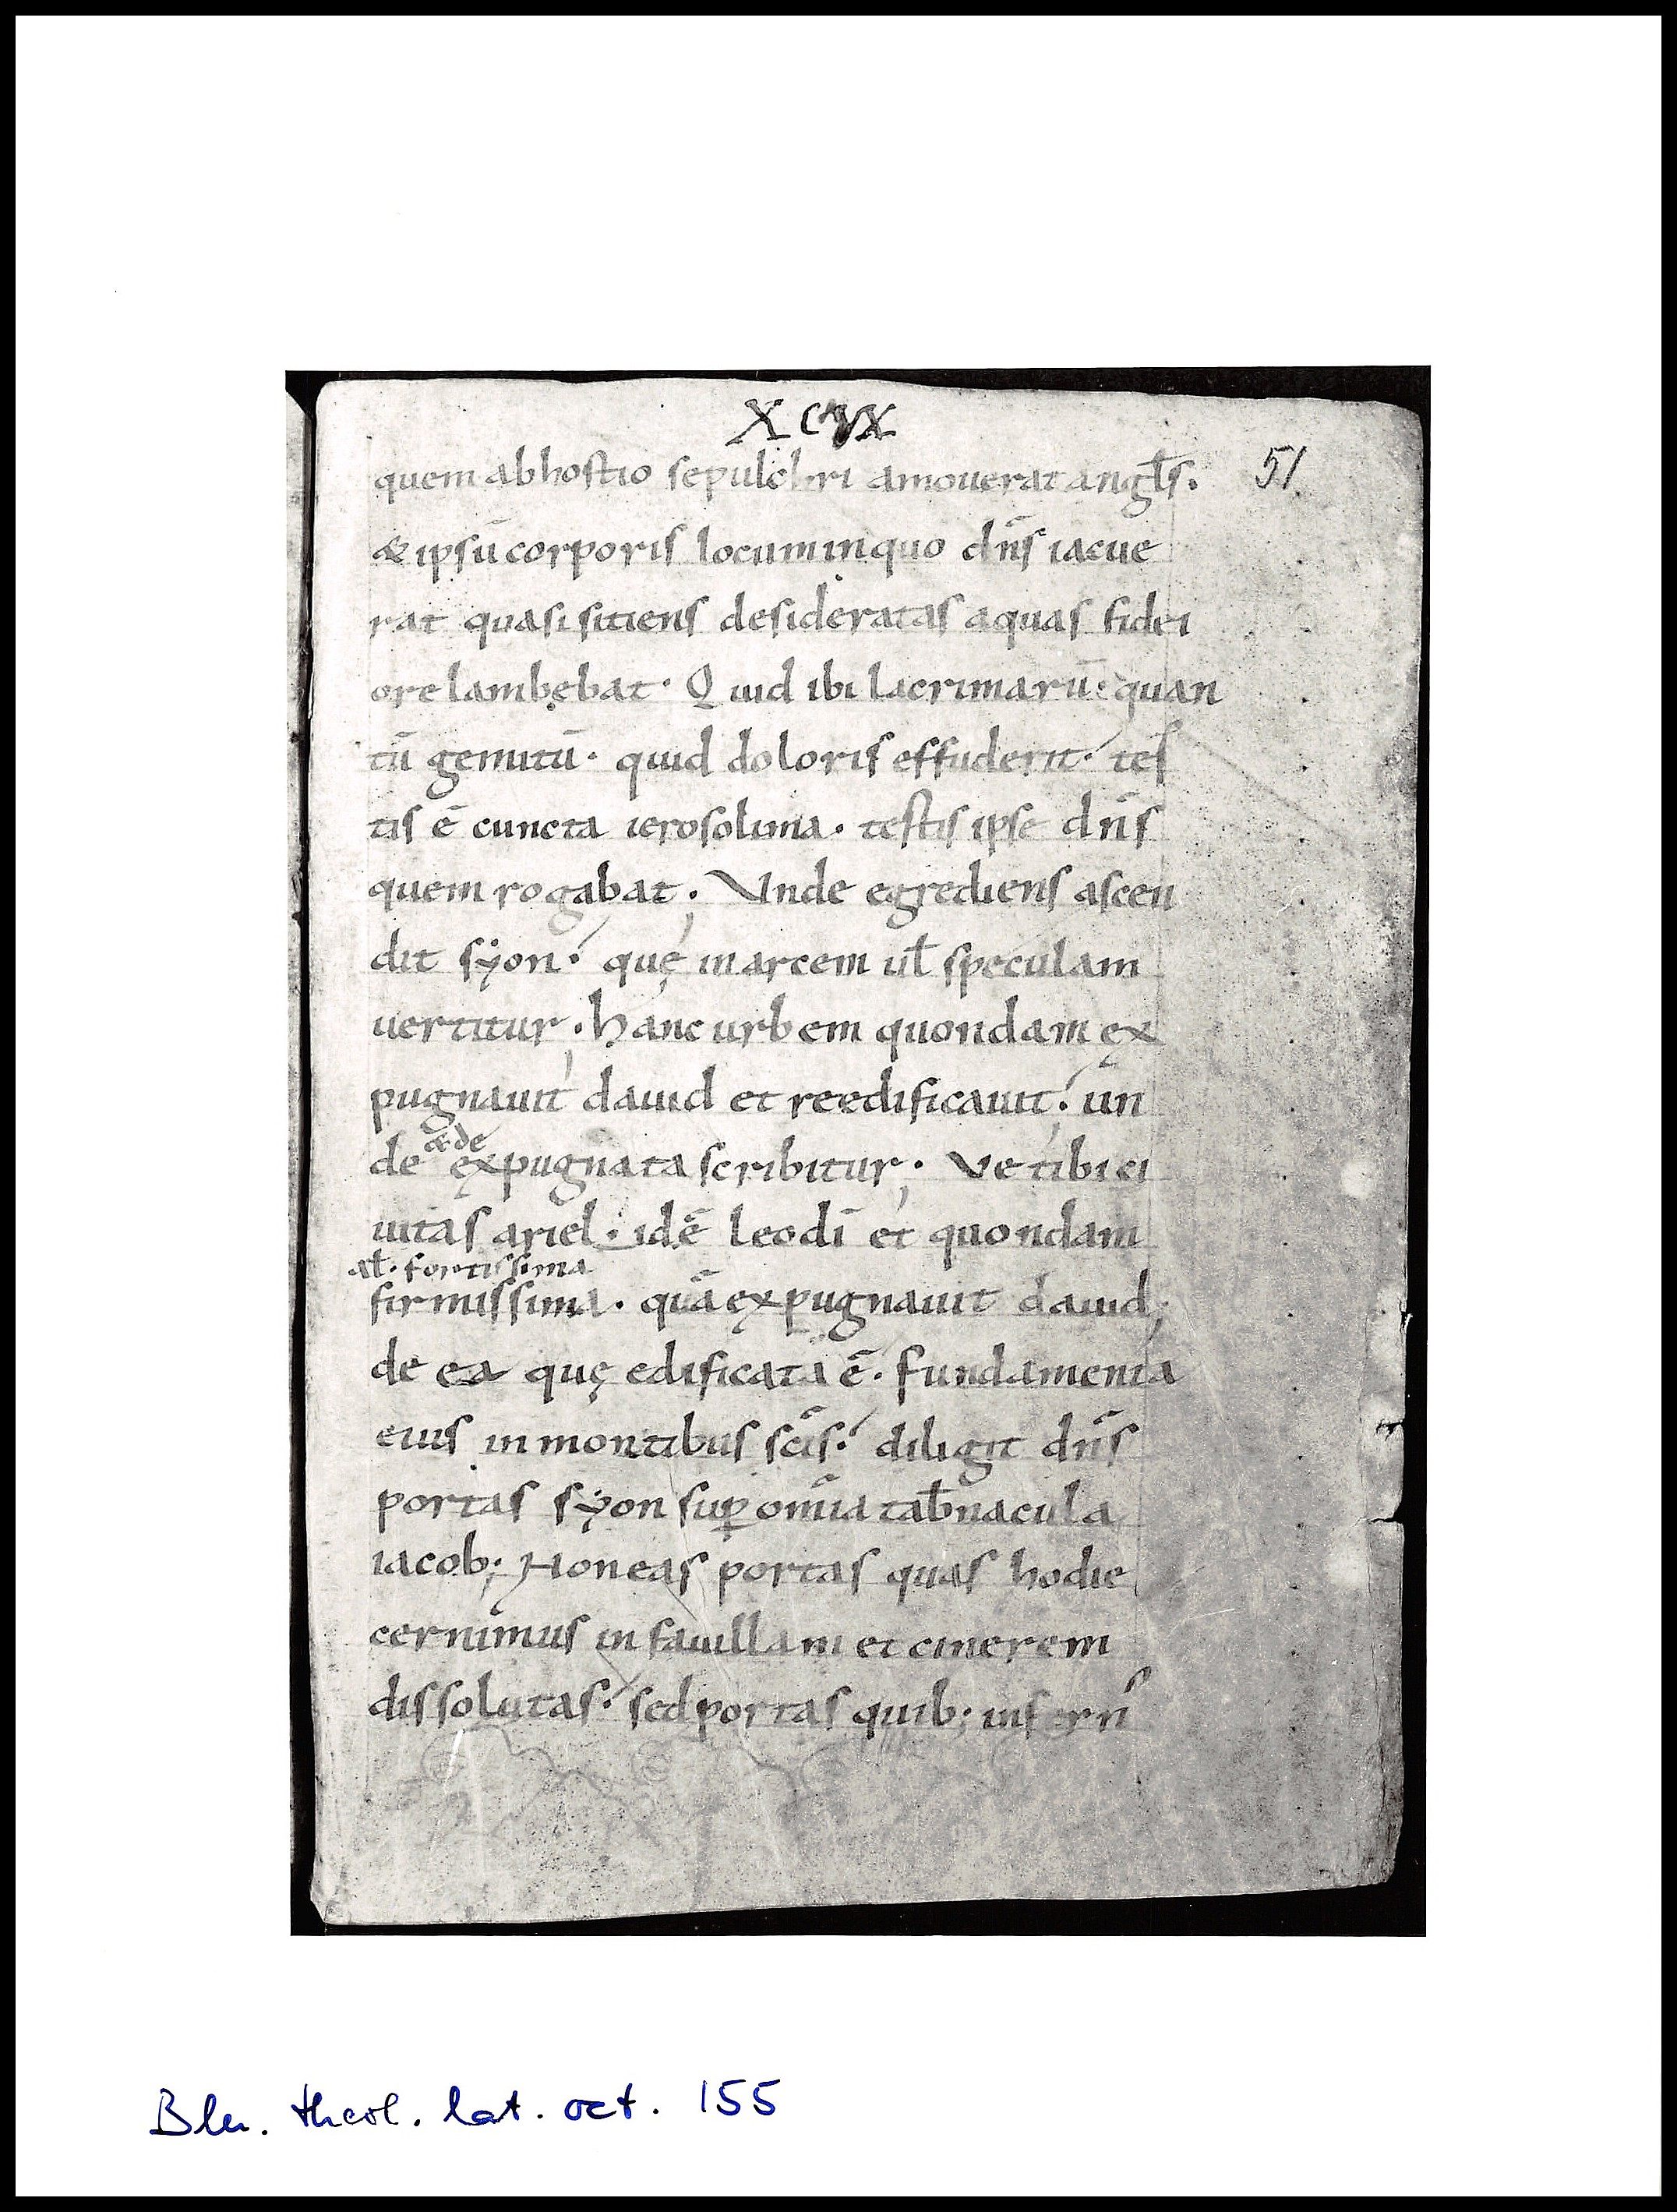 quem abhostio sepulchri amouerat angl̄s. 51
& ipsū corporis locum inquo dn̄s iacue
rat quasi sitiens desideratas aquas fidei
ore lambębat· Quid ibi lacrimarū· quan
tū gemitū· quid doloris effuderit· tes
tis ē cuncta ierosolima· testis ipse dn̄s
quem rogabat; Vnde egrediens ascen
dit sẏon· quę in arcem ul̄ speculam
uertitur; hanc urbem quondam ęx
pugnauit dauid et reedificauit; un
de &de ęxpugnata scribitur; Ve tibi ci
uitas ariel· id ē leo dī et quondam
al̄· fortissima
firmissima· quā ęxpugnauit dauid;
de ea quę edificata ē· fundamenta
eius in montibus sc̄is· diligit dn̄s
portas sẏon sup̱ om̄ia tab̄nacula
iacob; Non eas portas quas hodie
cernimus in fauillam et cinerem
dissolutas· sed portas quib; infern
Bln. theol. lat. oct. 155